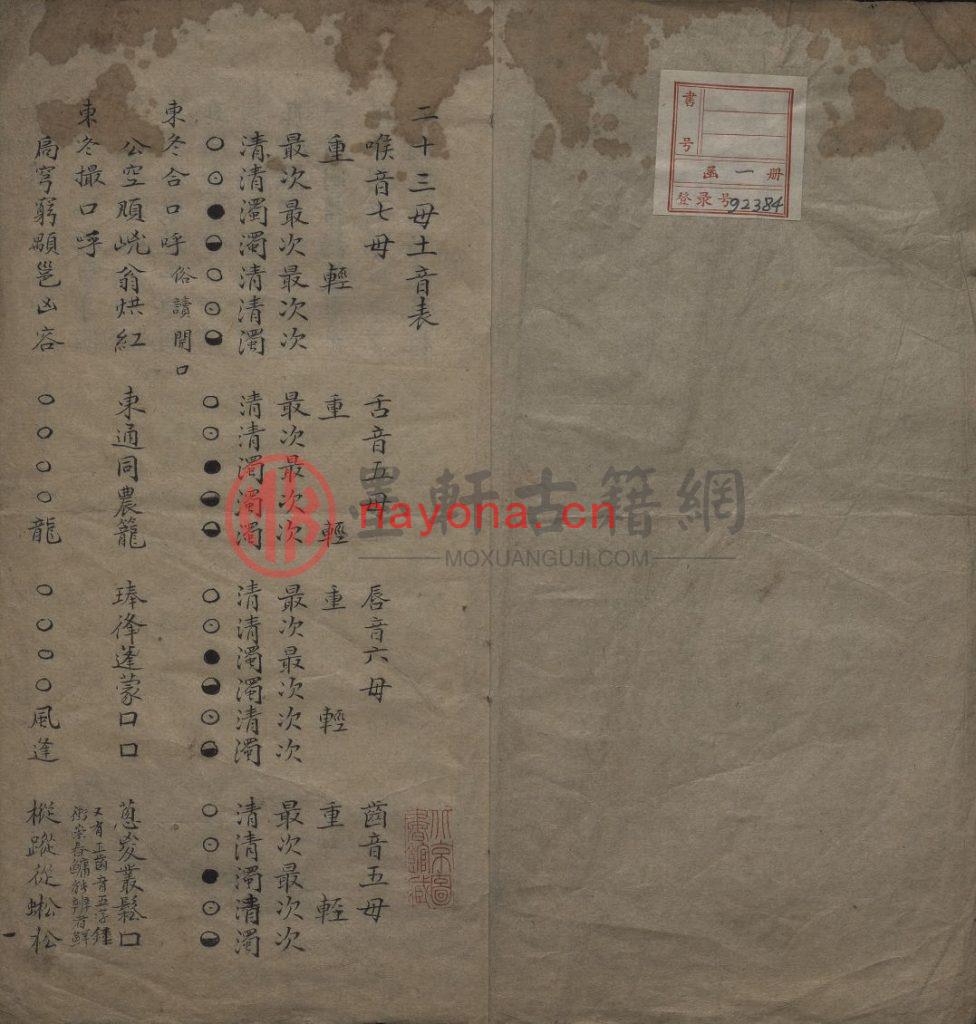 二十三母土音表
喉音七母
舌音五母
唇音六母
齒音五母
重輕
重輕
重輕
重輕
最次最次最次次
最次最次次
最次最次次次
最次最次次
清清濁濁清清濁
清清濁濁濁
清清濁濁清濁
清清濁清濁
○⊙●◒○⊙◒
○⊙●◒◒
○⊙●◒⊙◒
○⊙●⊙◒
東冬合口呼 俗讀開口
公空頄嵷翁烘紅
東通同農籠
琫逢蓬蒙口口
蔥叢鬆口
又有正齒音五字鍾
東冬撮口呼
局穹窮顒邕凶容
○○○○龍
○○○○風逢
樅蹤從蜙松
書號
函一冊
登录号92384
北京圖書館藏
墨軒古籍網
nayona.cn
MOXUANGUJI.COM